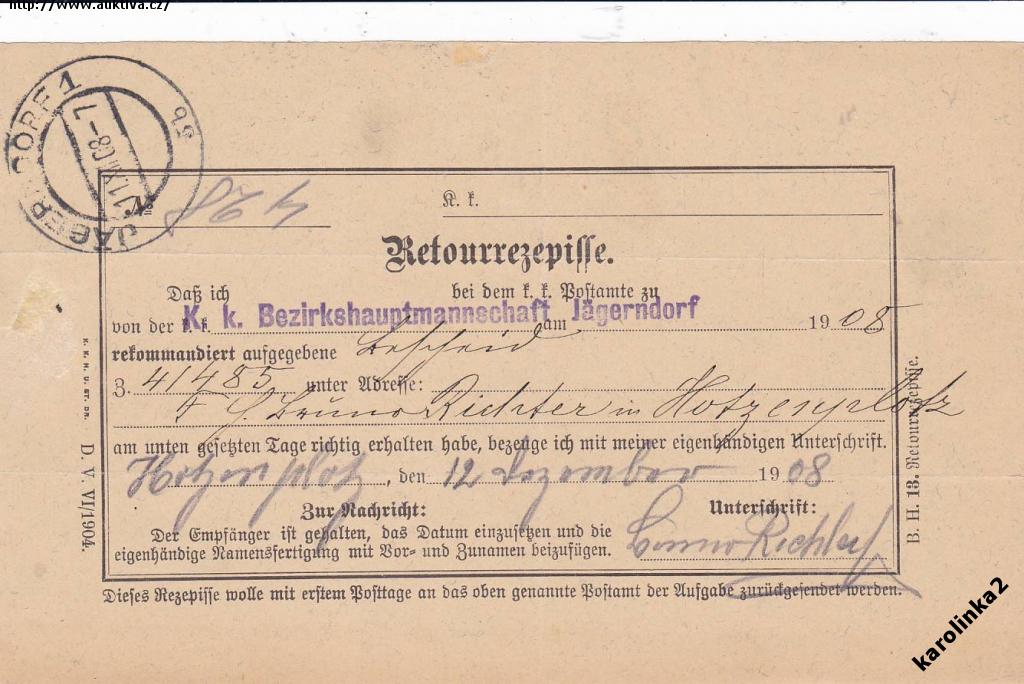 http://www.auktiva.cz/
JÄGERNDORF 1
11 XII 08-7
2b
K. k.
Retourrezepisse.
Daß ich bei dem k. k. Postamte zu
von der k. k. am 1908
K. k. Bezirkshauptmannschaft Jägerndorf
rekommandiert aufgegebene Bescheid
Z. 41485 unter Adresse:
Bruno Richter in Hotzenplotz
am unten gesetzten Tage richtig erhalten habe, bezeuge ich mit meiner eigenhändigen Unterschrift.
Hotzenplotz, den 12 Dezember 1908
Zur Nachricht:
Unterschrift:
Der Empfänger ist gehalten, das Datum einzusetzen und die
eigenhändige Namensfertigung mit Vor- und Zunamen beizufügen.
Bruno Richter
Dieses Rezepisse wolle mit erstem Posttage an das oben genannte Postamt der Aufgabe zurückgesendet werden.
K. K. H. U. ST. DR. D. V. VI/1904.
B. H. 13. Retourrezepisse.
karolinka2